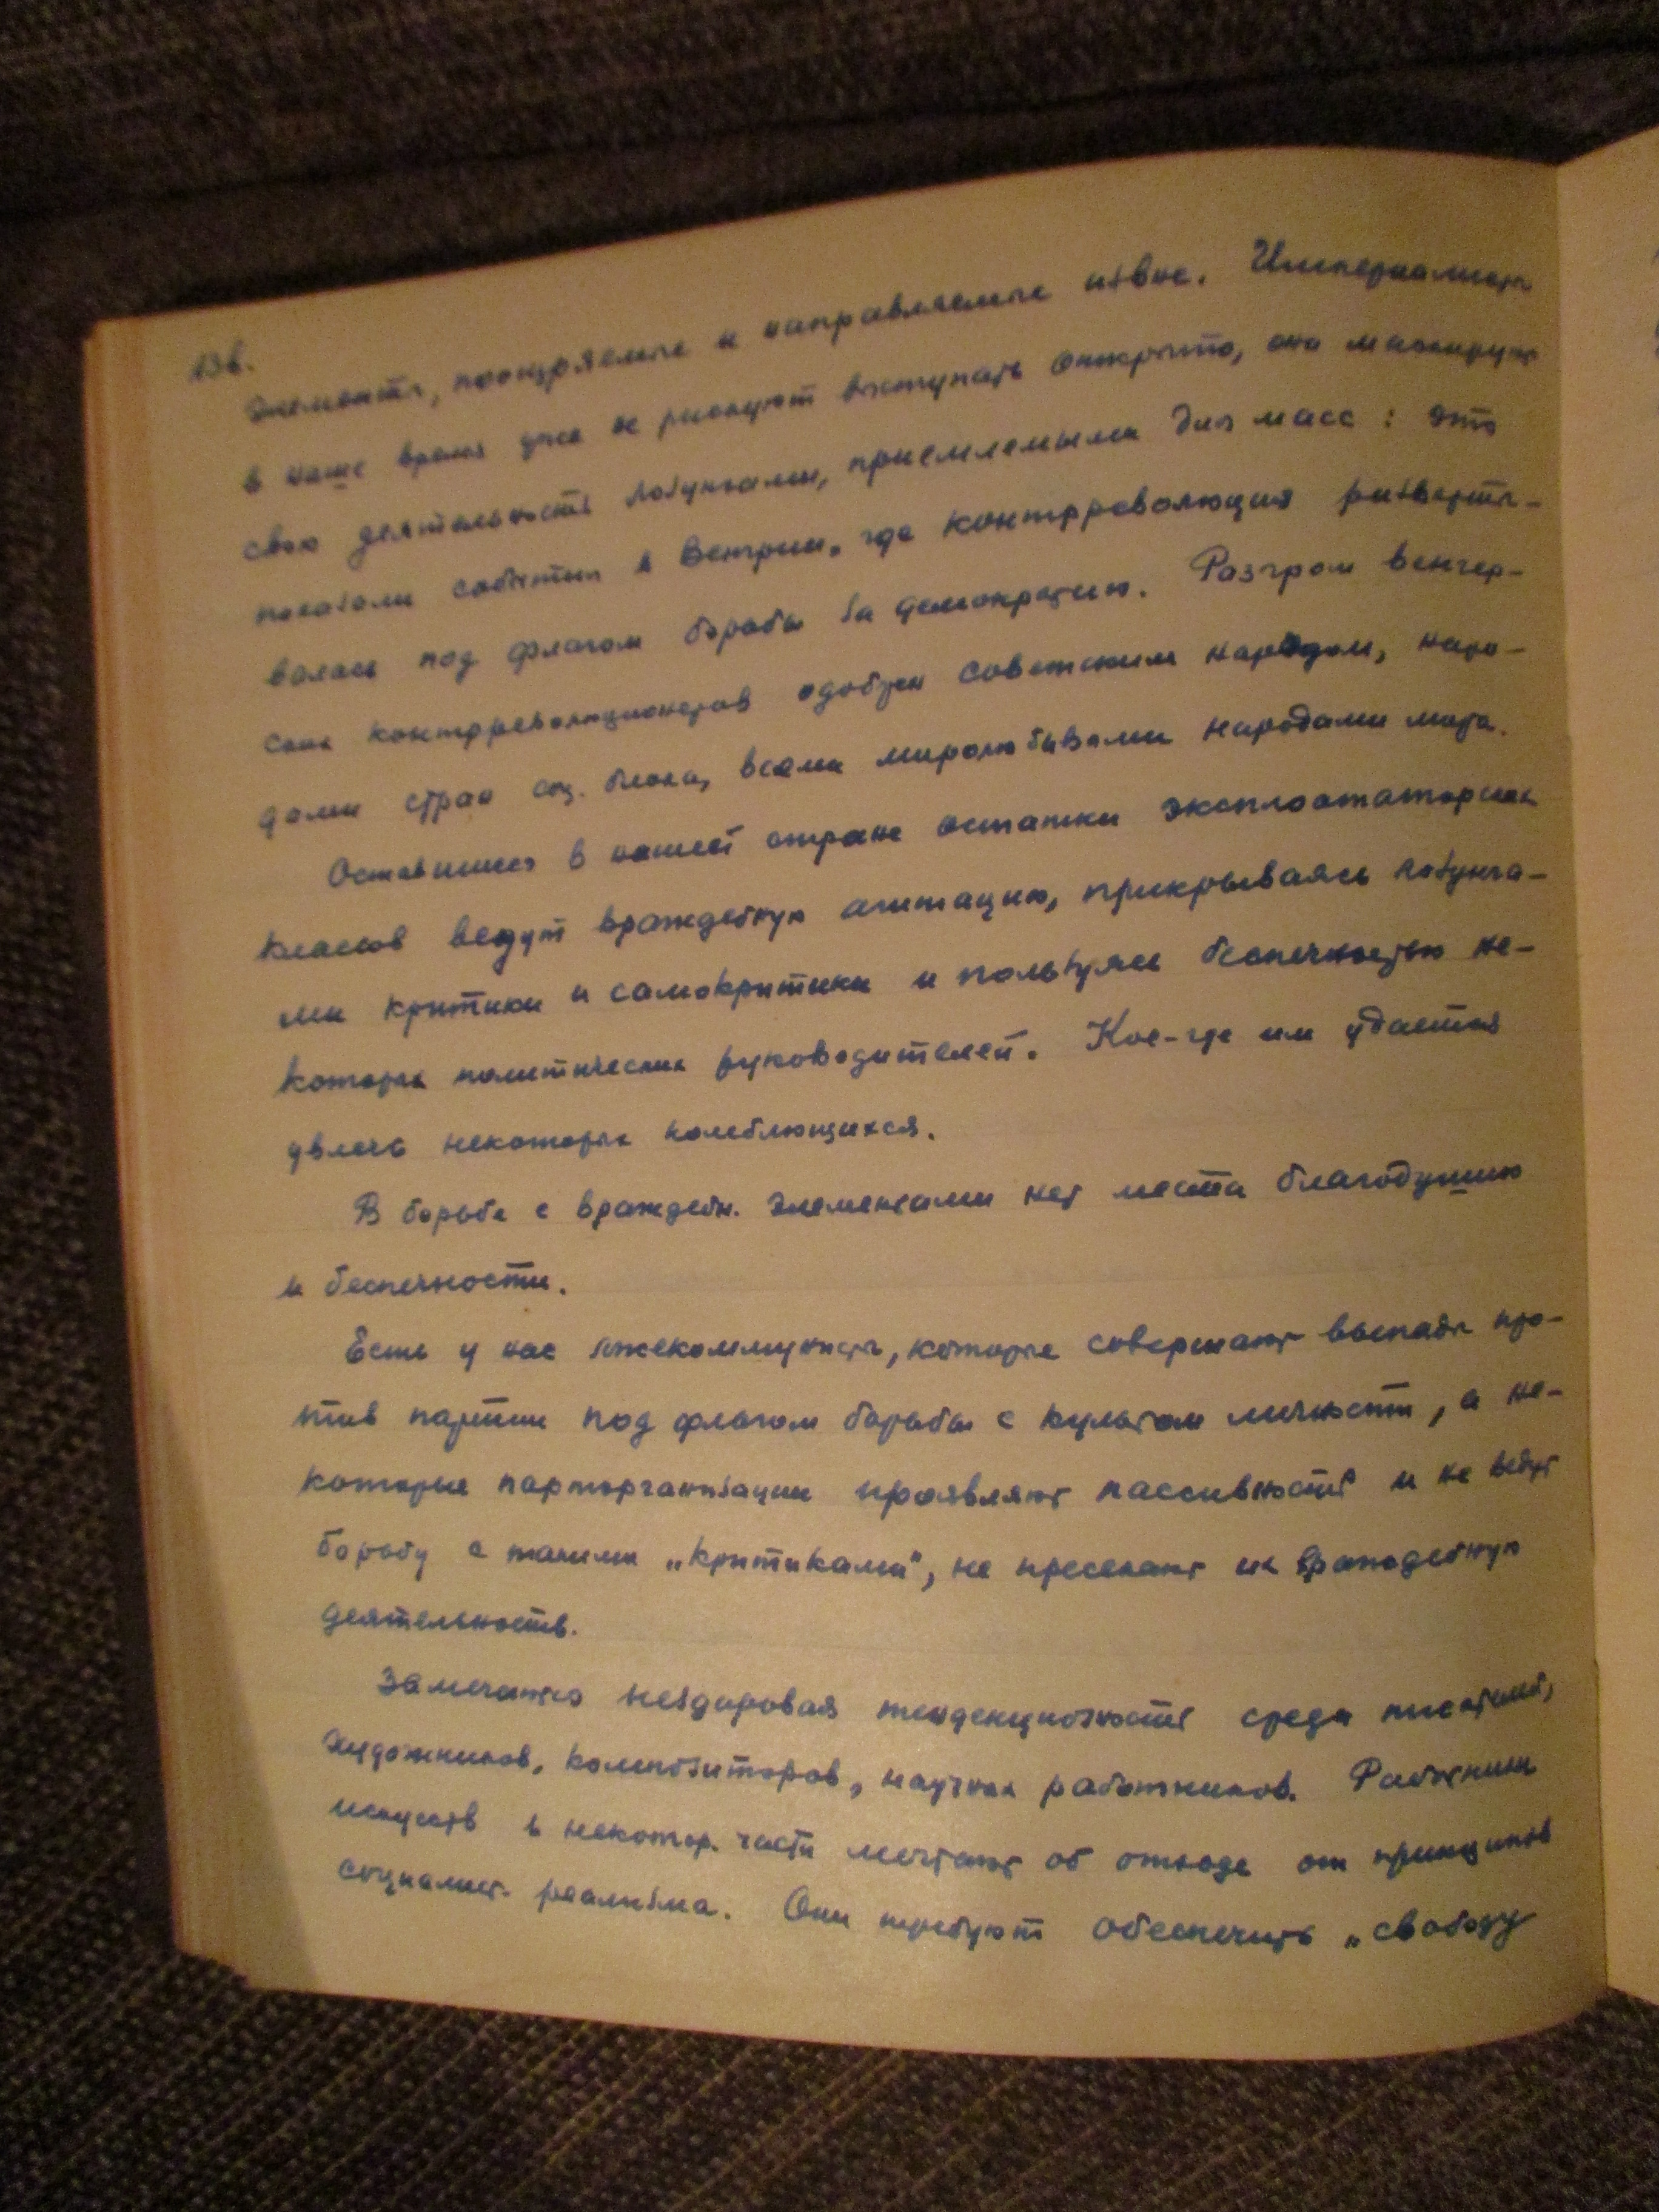 136.
элементы, поощряемые и направляемые извне. Империалисты
в наше время уже не рискуют выступать открыто, они маскируют
свою деятельность лозунгами, приемлемыми для масс: это
показали события в Венгрии, где контрреволюция развёрты-
валась под флагом борьбы за демократию. Разгром венгер-
ских контрреволюционеров одобрен советским народом, наро-
дами стран соц. блока, всеми миролюбивыми народами мира.
Оставшиеся в нашей стране остатки эксплоататорских
классов ведут враждебную агитацию, прикрываясь лозунга-
ми критики и самокритики и пользуясь беспечностью не-
которых политических руководителей. Кое-где им удается
увлечь некоторых колеблющихся.
В борьбе с враждебн. элементами нет места благодушию
и беспечности.
Есть у нас лжекоммунисты, которые совершают выпады про-
тив партии под флагом борьбы с культом личности, а не-
которые парторганизации проявляют пассивность и не ведут
борьбу с такими „критиками", не пресекают их враждебную
деятельность.
Замечается нездоровая тенденциозность среди писателей,
художников, композиторов, научных работников. Работники
искусств в некотор. части мечтают об отходе от принципов
социалист. реализма. Они требуют обеспечить „свободу